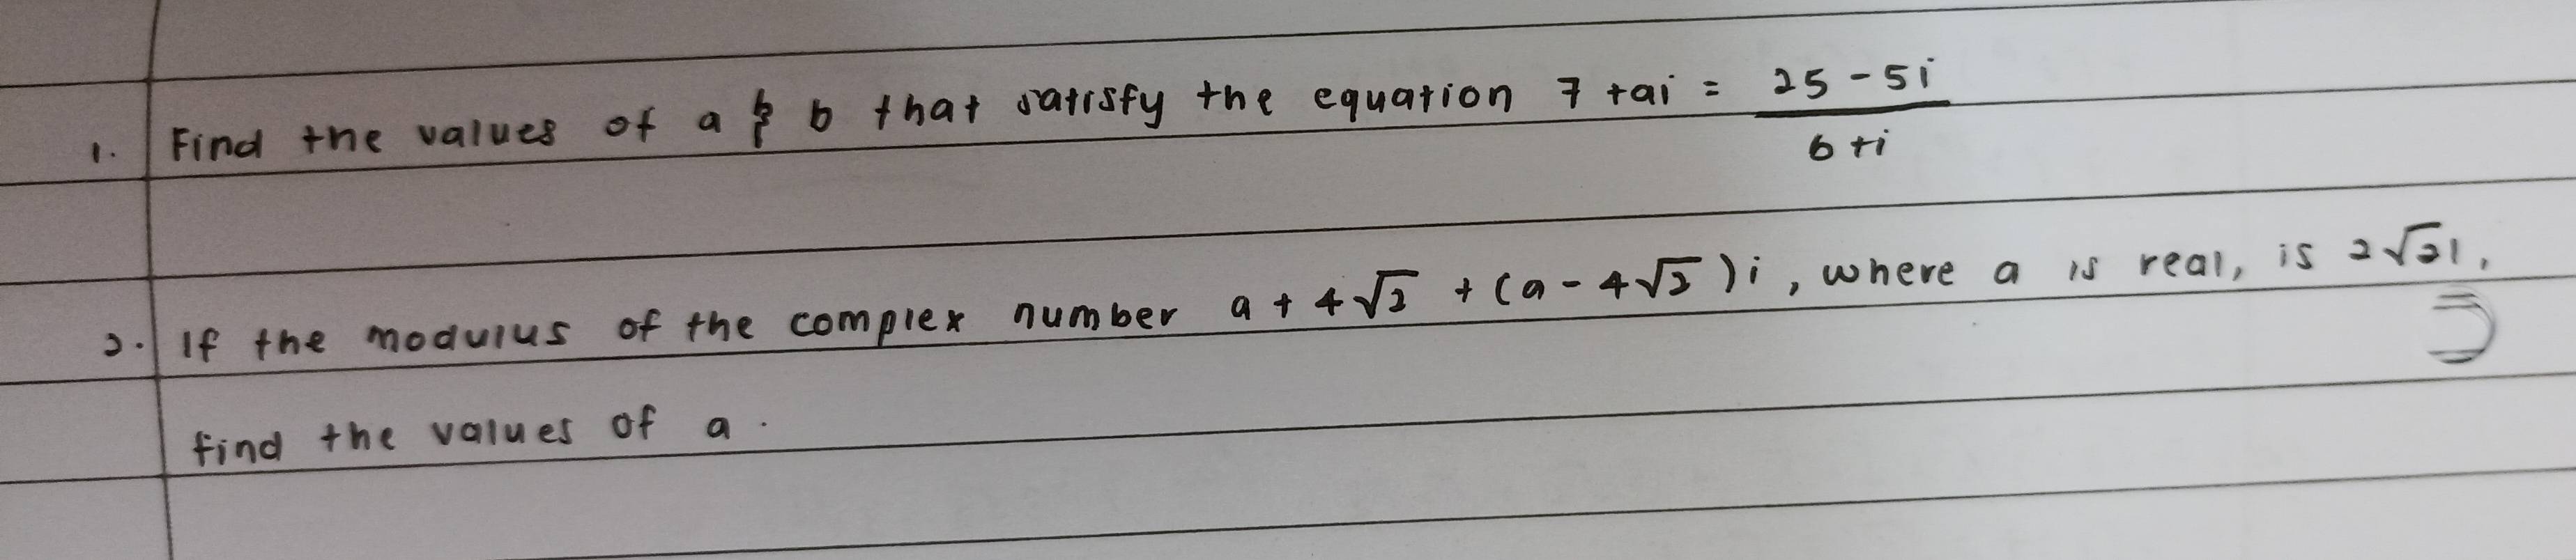 1. Find the values of a & b that satisfy the equation 7 + ai = 25 - 5i / b + i
2. If the modulus of the complex number a + 4√2 + (a - 4√2)i, where a is real, is 2√21,
find the values of a.